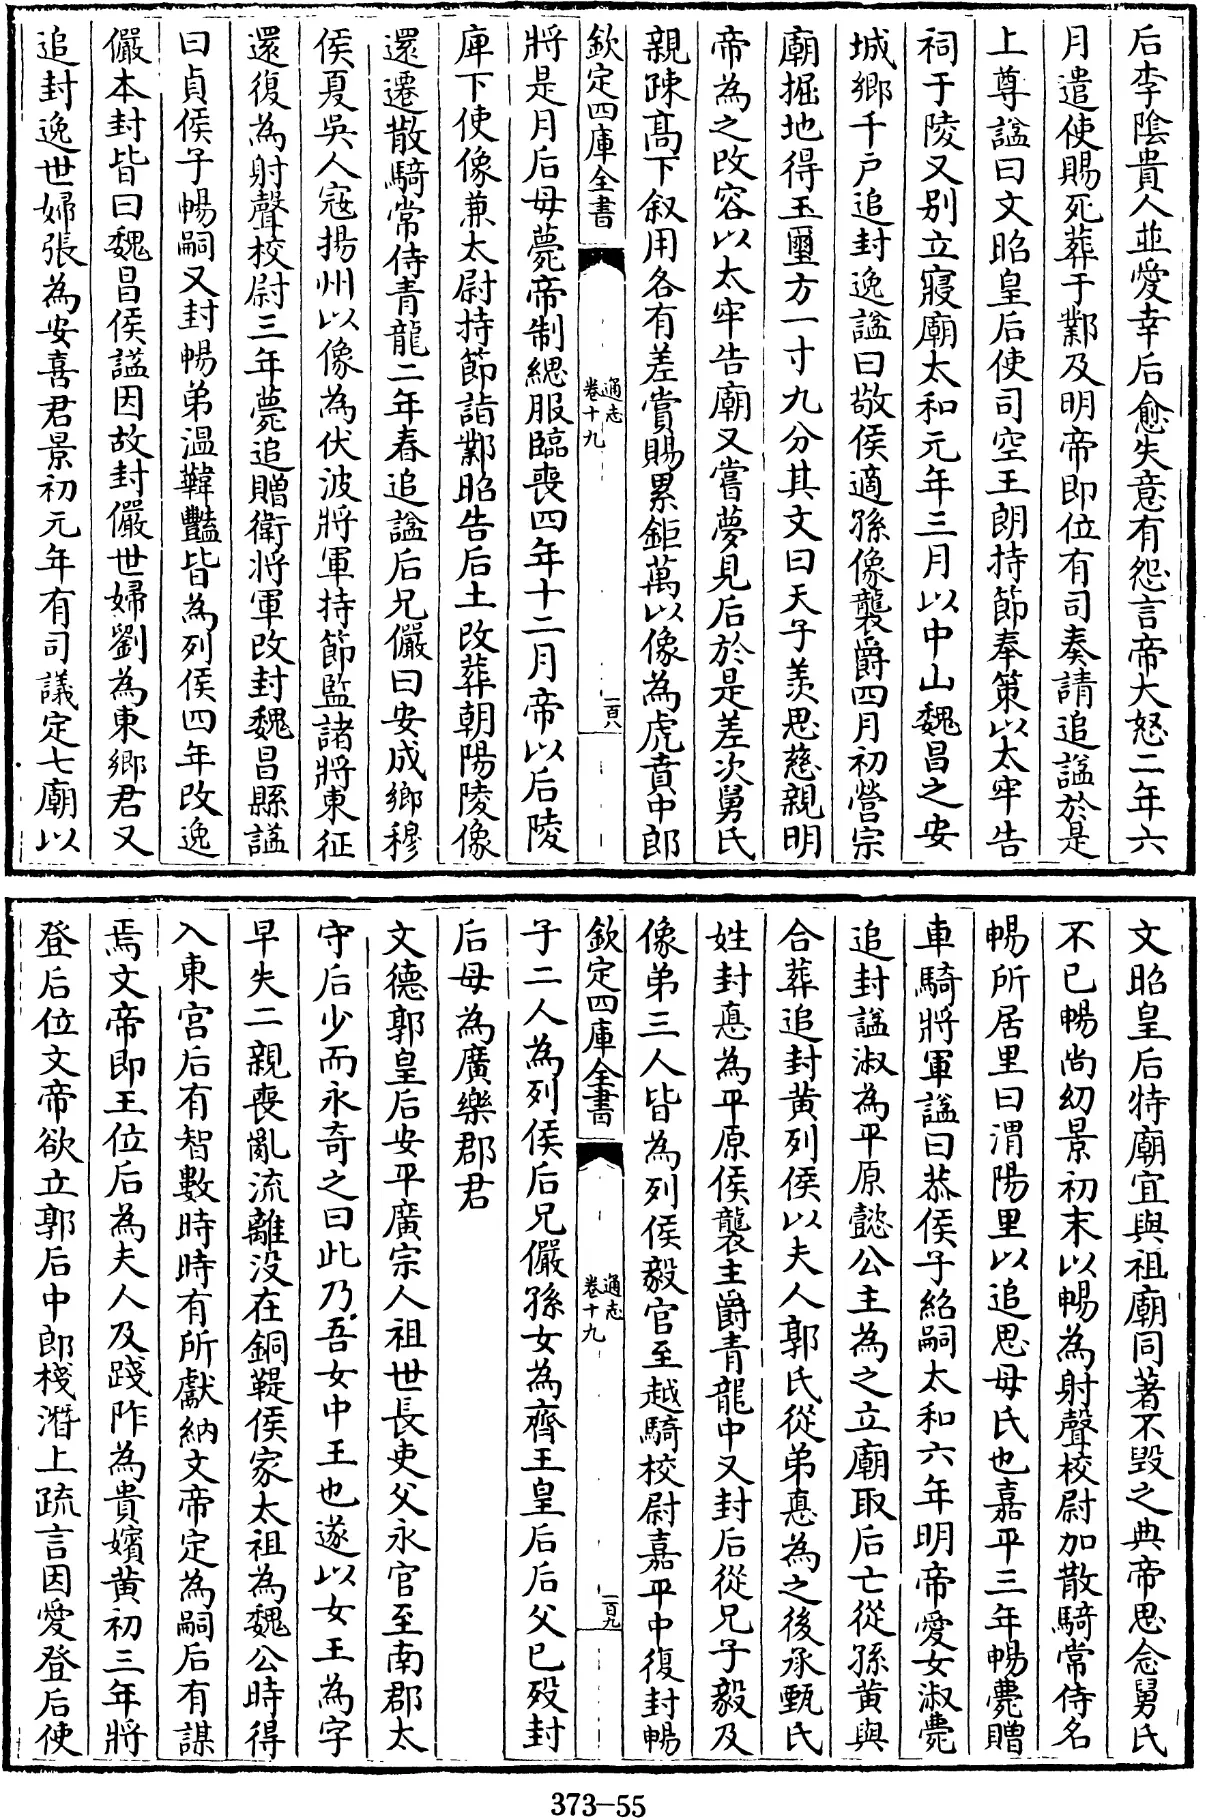 后李陰貴人並愛幸后愈失意有怨言帝大怒二年六
月遣使賜死葬于鄴及明帝即位有司奏請追諡於是
上尊諡曰文昭皇后使司空王朗持節奉策以太牢告
祠于陵又别立寢廟太和元年三月以中山魏昌之安
城鄉千戸追封逸諡曰敬侯適孫像襲爵四月初營宗
廟掘地得玉璽方一寸九分其文曰天子羨思慈親明
帝為之改容以太牢告廟又嘗夢見后於是差次舅氏
親疎髙下叙用各有差賞賜累鉅萬以像為虎賁中郎
欽定四庫全書
通志
卷十九
一百八
將是月后母薨帝制緦服臨喪四年十二月帝以后陵
庳下使像兼太尉持節詣鄴昭告后土改葬朝陽陵像
還遷散騎常侍青龍二年春追諡后兄儼曰安成鄉穆
侯夏吳人寇揚州以像為伏波將軍持節監諸將東征
還復為射聲校尉三年薨追贈衛將軍改封魏昌縣諡
曰貞侯子暢嗣又封暢弟温韡豔皆為列侯四年改逸
儼本封皆曰魏昌侯諡因故封儼世婦劉為東鄉君又
追封逸世婦張為安喜君景初元年有司議定七廟以
文昭皇后特廟宜與祖廟同著不毁之典帝思念舅氏
不已暢尚幼景初末以暢為射聲校尉加散騎常侍名
暢所居里曰渭陽里以追思母氏也嘉平三年暢薨贈
車騎將軍諡曰恭侯子紹嗣太和六年明帝愛女淑薨
追封諡淑為平原懿公主為之立廟取后亡從孫黄與
合葬追封黄列侯以夫人郭氏從弟悳為之後承甄氏
姓封悳為平原侯襲主爵青龍中又封后從兄子毅及
像弟三人皆為列侯毅官至越騎校尉嘉平中復封暢
欽定四庫全書
通志
卷十九
一百九
子二人為列侯后兄儼孫女為齊王皇后后父已殁封
后母為廣樂郡君
文德郭皇后安平廣宗人祖世長吏父永官至南郡太
守后少而永奇之曰此乃吾女中王也遂以女王為字
早失二親喪亂流離没在銅鞮侯家太祖為魏公時得
入東宫后有智數時時有所獻納文帝定為嗣后有謀
焉文帝即王位后為夫人及踐阼為貴嬪黄初三年將
登后位文帝欲立郭后中郎棧潛上疏言因愛登后使
373–55